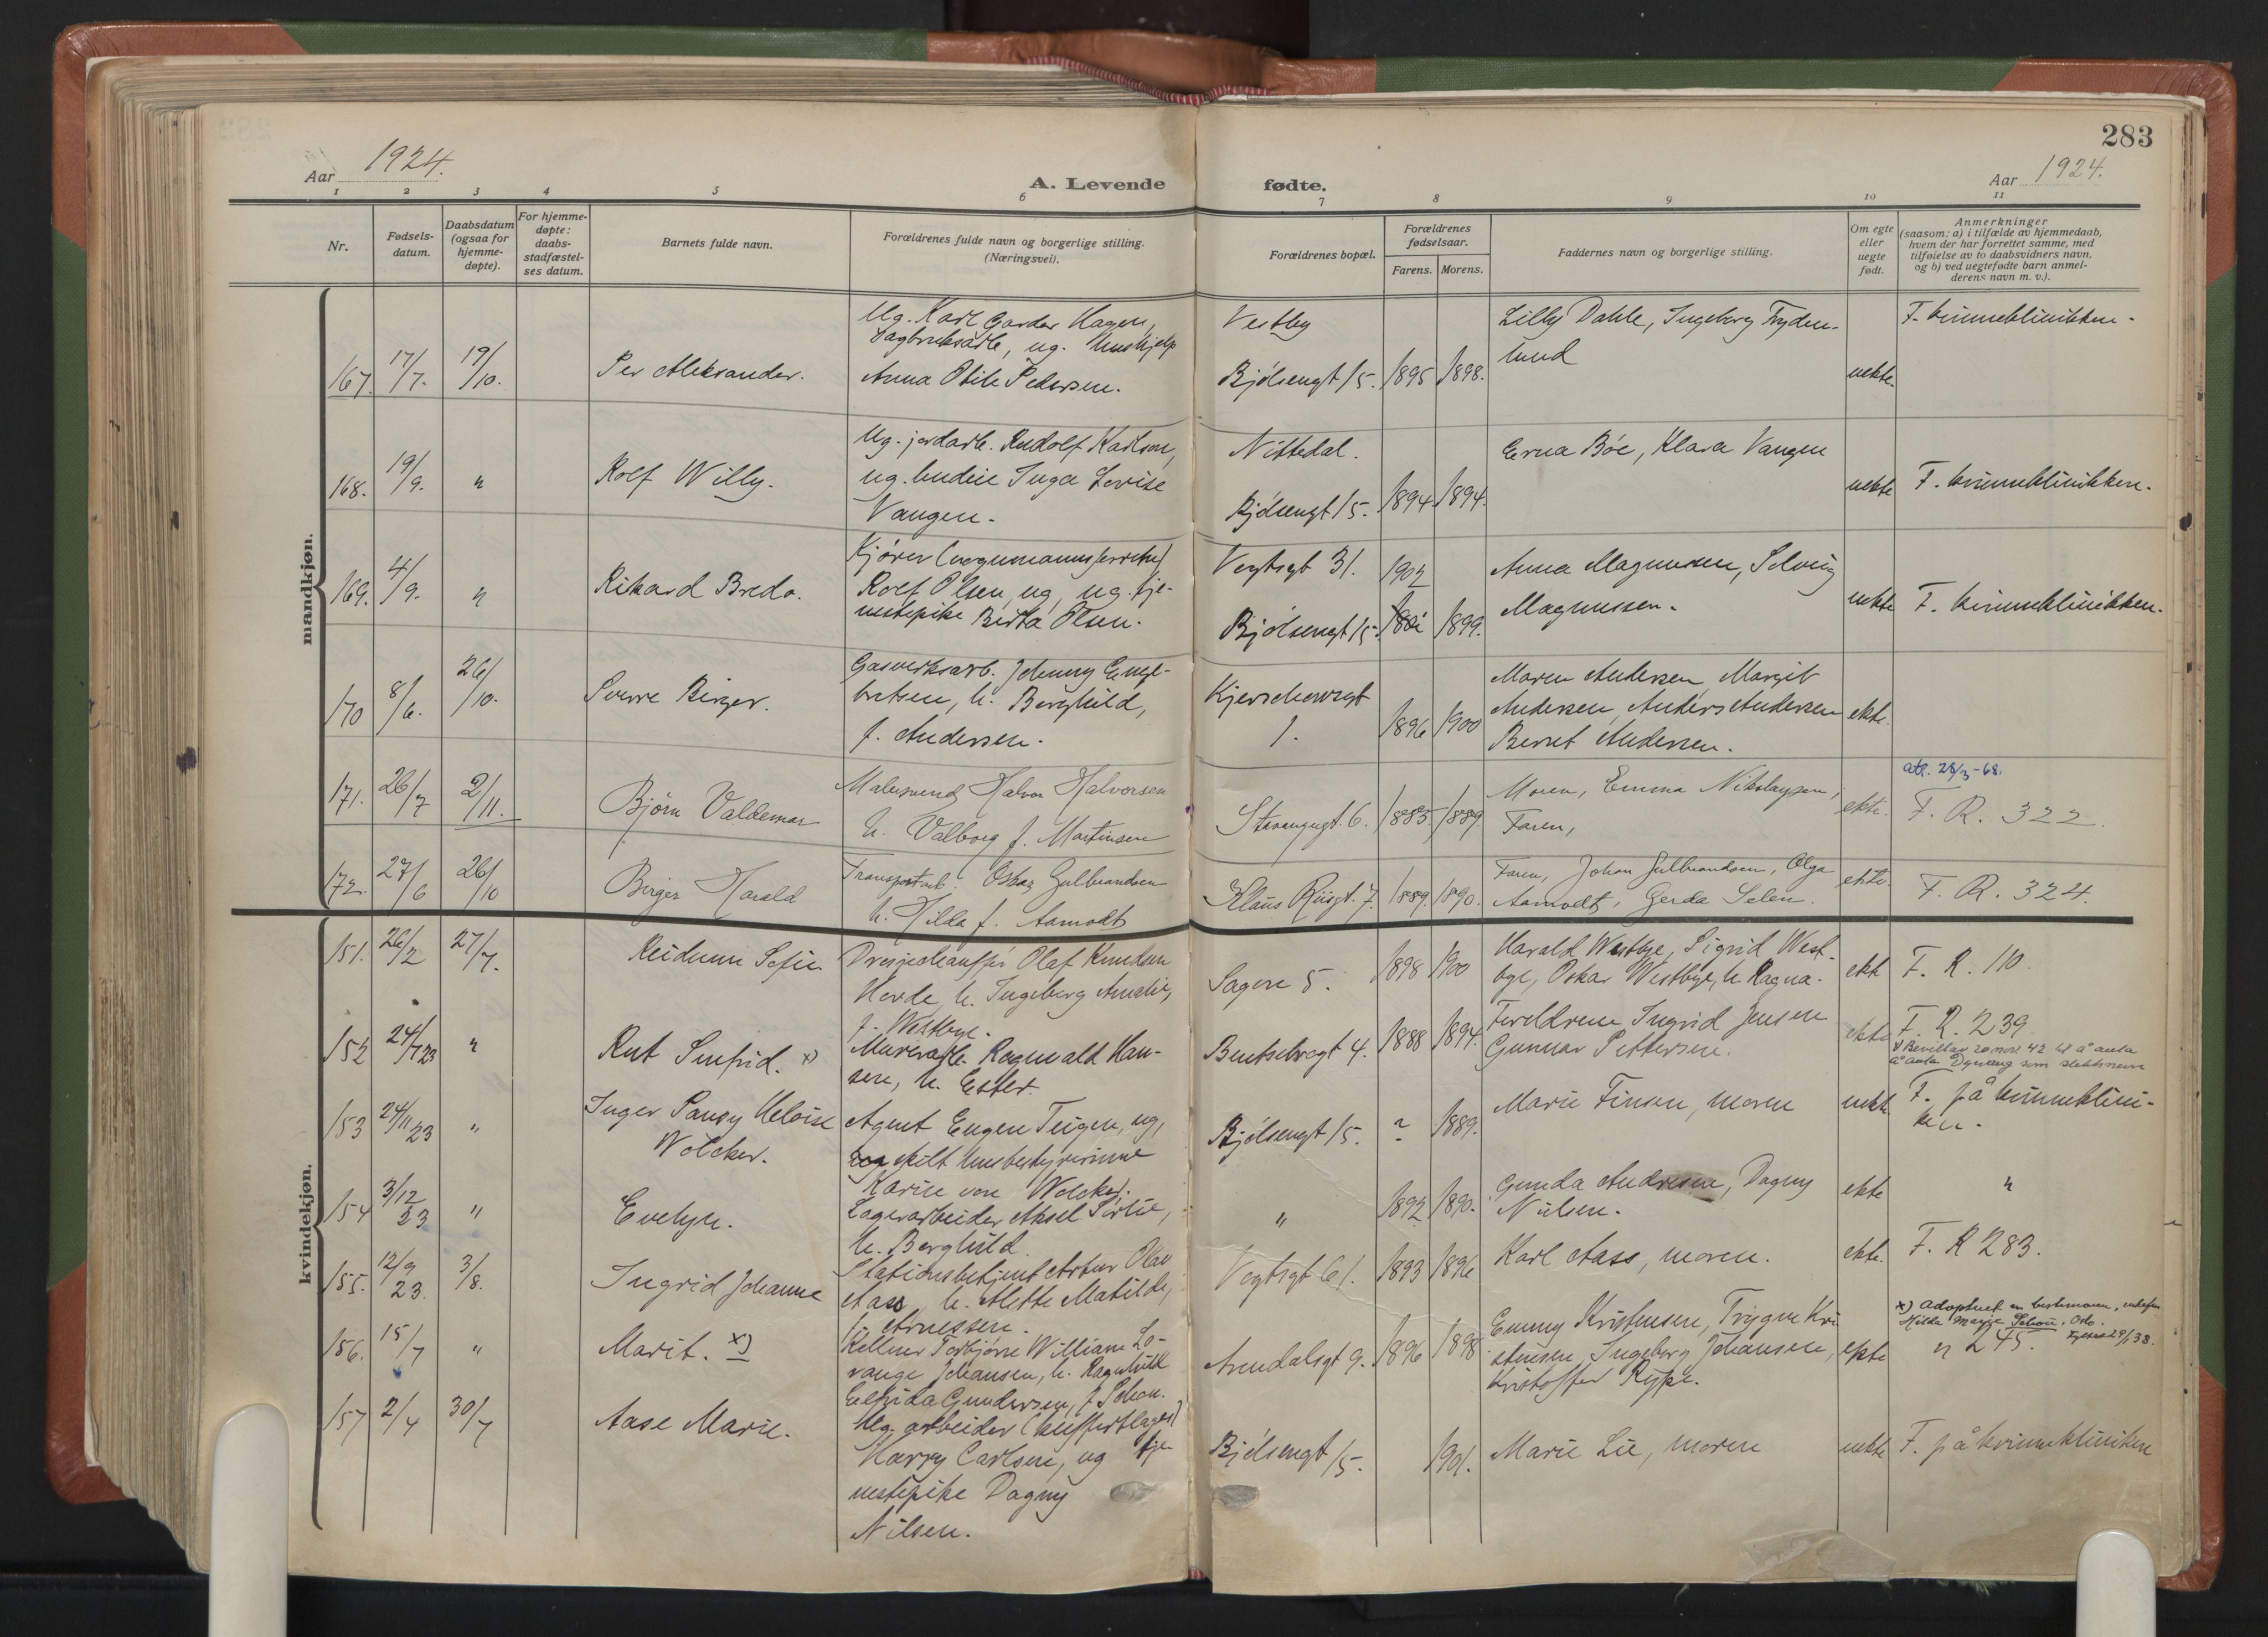 283
Aar 1924.
A. Levende fødte.
Aar 1924.
1 2 3 4 5 6 7 8 9 10 11
Nr.
Fødsels-
datum.
Daabsdatum
(ogsaa for
hjemme-
døpte).
For hjemme-
døpte:
daabs-
stadfæstel-
ses datum.
Barnets fulde navn.
Forældrenes fulde navn og borgerlige stilling.
(Næringsvei).
Forældrenes bopæl.
Forældrenes
fødselsaar.
Farens. Morens.
Faddernes navn og borgerlige stilling.
Om egte
eller
uegte
født.
Anmerkninger
(saasom: a) i tilfælde av hjemmedaab,
hvem der har forrettet samme, med
tilføielse av to daabsvidners navn,
og b) ved uegtefødte barn anmel-
derens navn m. v.).
mandkjøn.
167. 17/7. 19/10. Per Aleksander.
Ug. Karl Gardar Hagen,
Sagbruksarb, ug. hushjelp
Anna Otile Pedersen.
Vestby
Bjølsengt 15. 1895 1898.
Lilly Dahle, Ingeborg Tryden-
lund
uekte.
F. kvinneklinikken.
168. 19/9. " Rolf Willy.
Ug. jordarb. Rudolf Karlson,
ug. budeie Inga Lovise
Vangen.
Nittedal.
Bjølsengt 15. 1894. 1894.
Erna Bøe, Klara Vangen
uekte
F. kvinneklinikken.
169. 4/9. " Rikard Bredo.
Kjører (vognmannsforretn)
Rolf Olsen, ug, ug. tje-
nestepike Berta Olsen.
Vogtsgt 31. 1902
Bjølsengt 15. 1899.
Anna Magnussen, Solveig
Magnussen.
uekte
F. kvinneklinikken.
170 8/6. 26/10. Sverre Birger.
Gasverksarb. Johnny Engel-
bretsen, h. Borghild,
f. Andersen.
Kjerschowsgt
1. 1896 1900
Maren Andersen, Margit
Andersen, Anders Andersen
Bernt Andersen.
ekte.
171. 26/7 2/11. Bjørn Valdemar
Malersvend Halvor Halvorsen
h. Valborg f. Martinsen
Stavangergt. 6. 1885. 1889.
Moren, Emma Nikolaysen,
Faren,
ekte.
att. 28/3-68.
F. R. 322.
172. 27/6 26/10 Birger Harald
Transportarb. Oskar Gulbrandsen
h. Hilda f. Aamodt
Klaus Riisgt. 7. 1889. 1890.
Faren, Johan Gulbrandsen, Olga
Aamodt, Gerda Selen.
ekte.
F. R. 324.
kvindekjøn.
151. 26/2 27/7. Reidunn Sofie
Drosjechauffør Olaf Knudsen
Herde, h. Ingeborg Amalie,
f. Westbye.
Sagene 5. 1898 1900
Harald Westbye, Sigrid West-
bye, Oskar Westbye, h. Ragna.
ekte
F. R. 110.
152 24/7 23 " Rut Synfrid. x)
Murerarb. Ragnvald Han-
sen, h. Ester.
Bentsebrogt 4. 1888 1894.
Foreldrene, Ingrid Jensen
Gunnar Pettersen.
ekte
F. R. 239
x) Bevilling 20 nov. 42 til å anta
å anta som slektsnavn
153 24/11 23 " Inger Pansy Heloise
Wolcker.
Agent Eugen Teigen, ug,
skilt husbestyrerinne
Karin von Wolcker.
Bjølsengt 15. ? 1889.
Marie Finson, moren
uekte
F. på kvinneklini-
ken.
154 3/12 23 " Evelyn.
Lagerarbeider Aksel Sørlie,
h. Borghild.
" 1892 1890.
Gunda Andresen, Dagny
Nilsen.
ekte
"
155. 12/9 23. 3/8. Ingrid Johanne
Stationsbetjent Artur Olav
Aass, h. Alette Matilde,
f. Arnessen.
Vogtsgt 61. 1893 1896
Karl Aass, moren.
ekte.
F. R 283.
156. 15/7 " Marit. x)
Kellner Torbjørn William Lo-
range Johansen, h. Ragnhild
Elfrida Gundersen, f. Schou.
Arendalsgt 9. 1896 1898.
Emmy Kristensen, Trygve Kri
stensen, Ingeborg Johansen,
Kristoffer Rype.
ekte
x) Adoptert av bestemoren, enkefru
Hilda Marie Schou, Oslo.
Fylket 29/1 38.
" 245.
157 2/4 30/7 Aase Marie.
Ug. arbeider (kuffertlager)
Harry Carlsen, ug tje-
nestepike Dagny
Nilsen.
Bjølsengt 15. 1901.
Marie Lie, moren
uekte
F. på kvinnekliniken